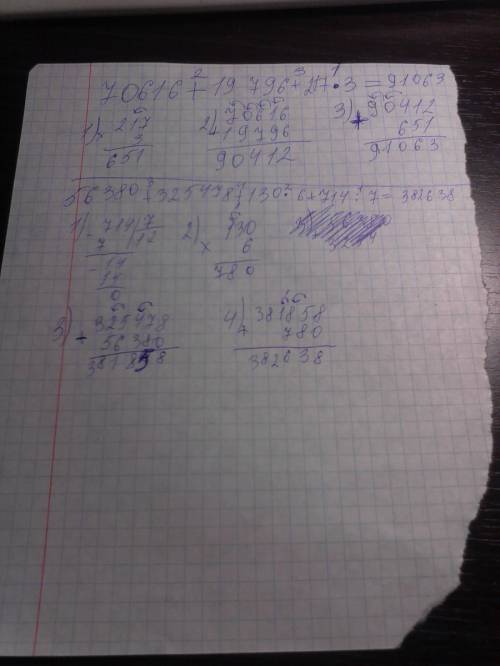 2 3 1
70616+19 796+217·3=91063
1) 217 2) 70616 3) 90412
× 3 + 19796 + 651
651 90412 91063
56380+325478+130·6+714:7=382638
1) 714 7 2) 130
- 7 12 × 6
- 14 780
14
0
3) 325478 4) 381858
+ 56380 + 780
381858 382638